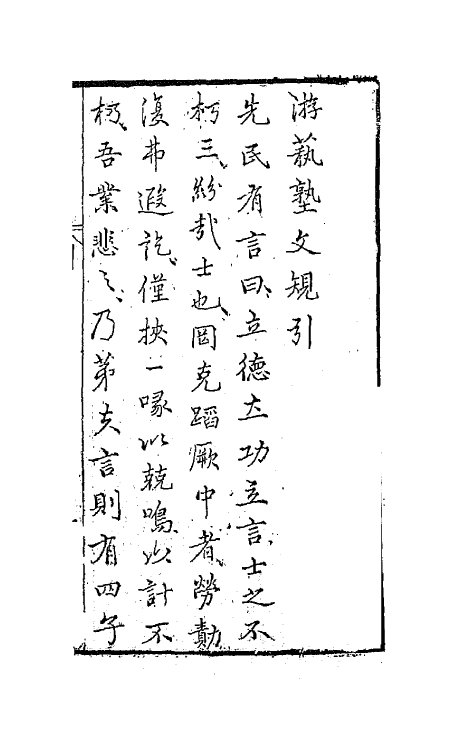 游蓺塾文規引
先民有言曰立德立功立言士之不
朽三紛哉士也罔克蹈厥中者勞勣
復弗遐訖僅挾一喙以競鳴以計不
朽吾業悲之乃弟夫言則有四子